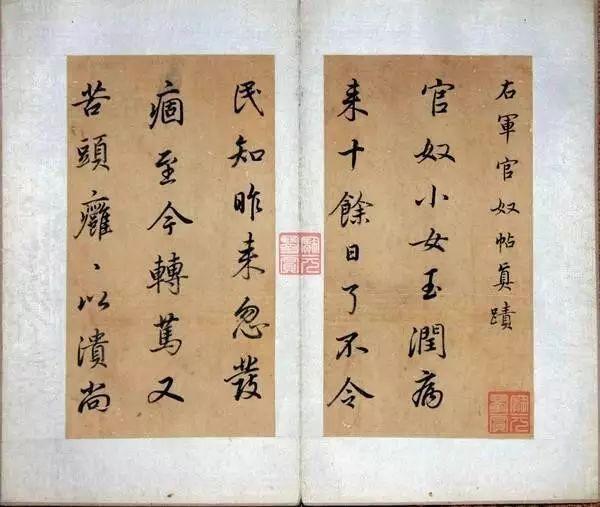 右軍官奴帖真蹟
官奴小女玉潤病
来十餘日了不令
民知昨来忽發
痼至今轉篤又
苦頭癰〻以潰尚